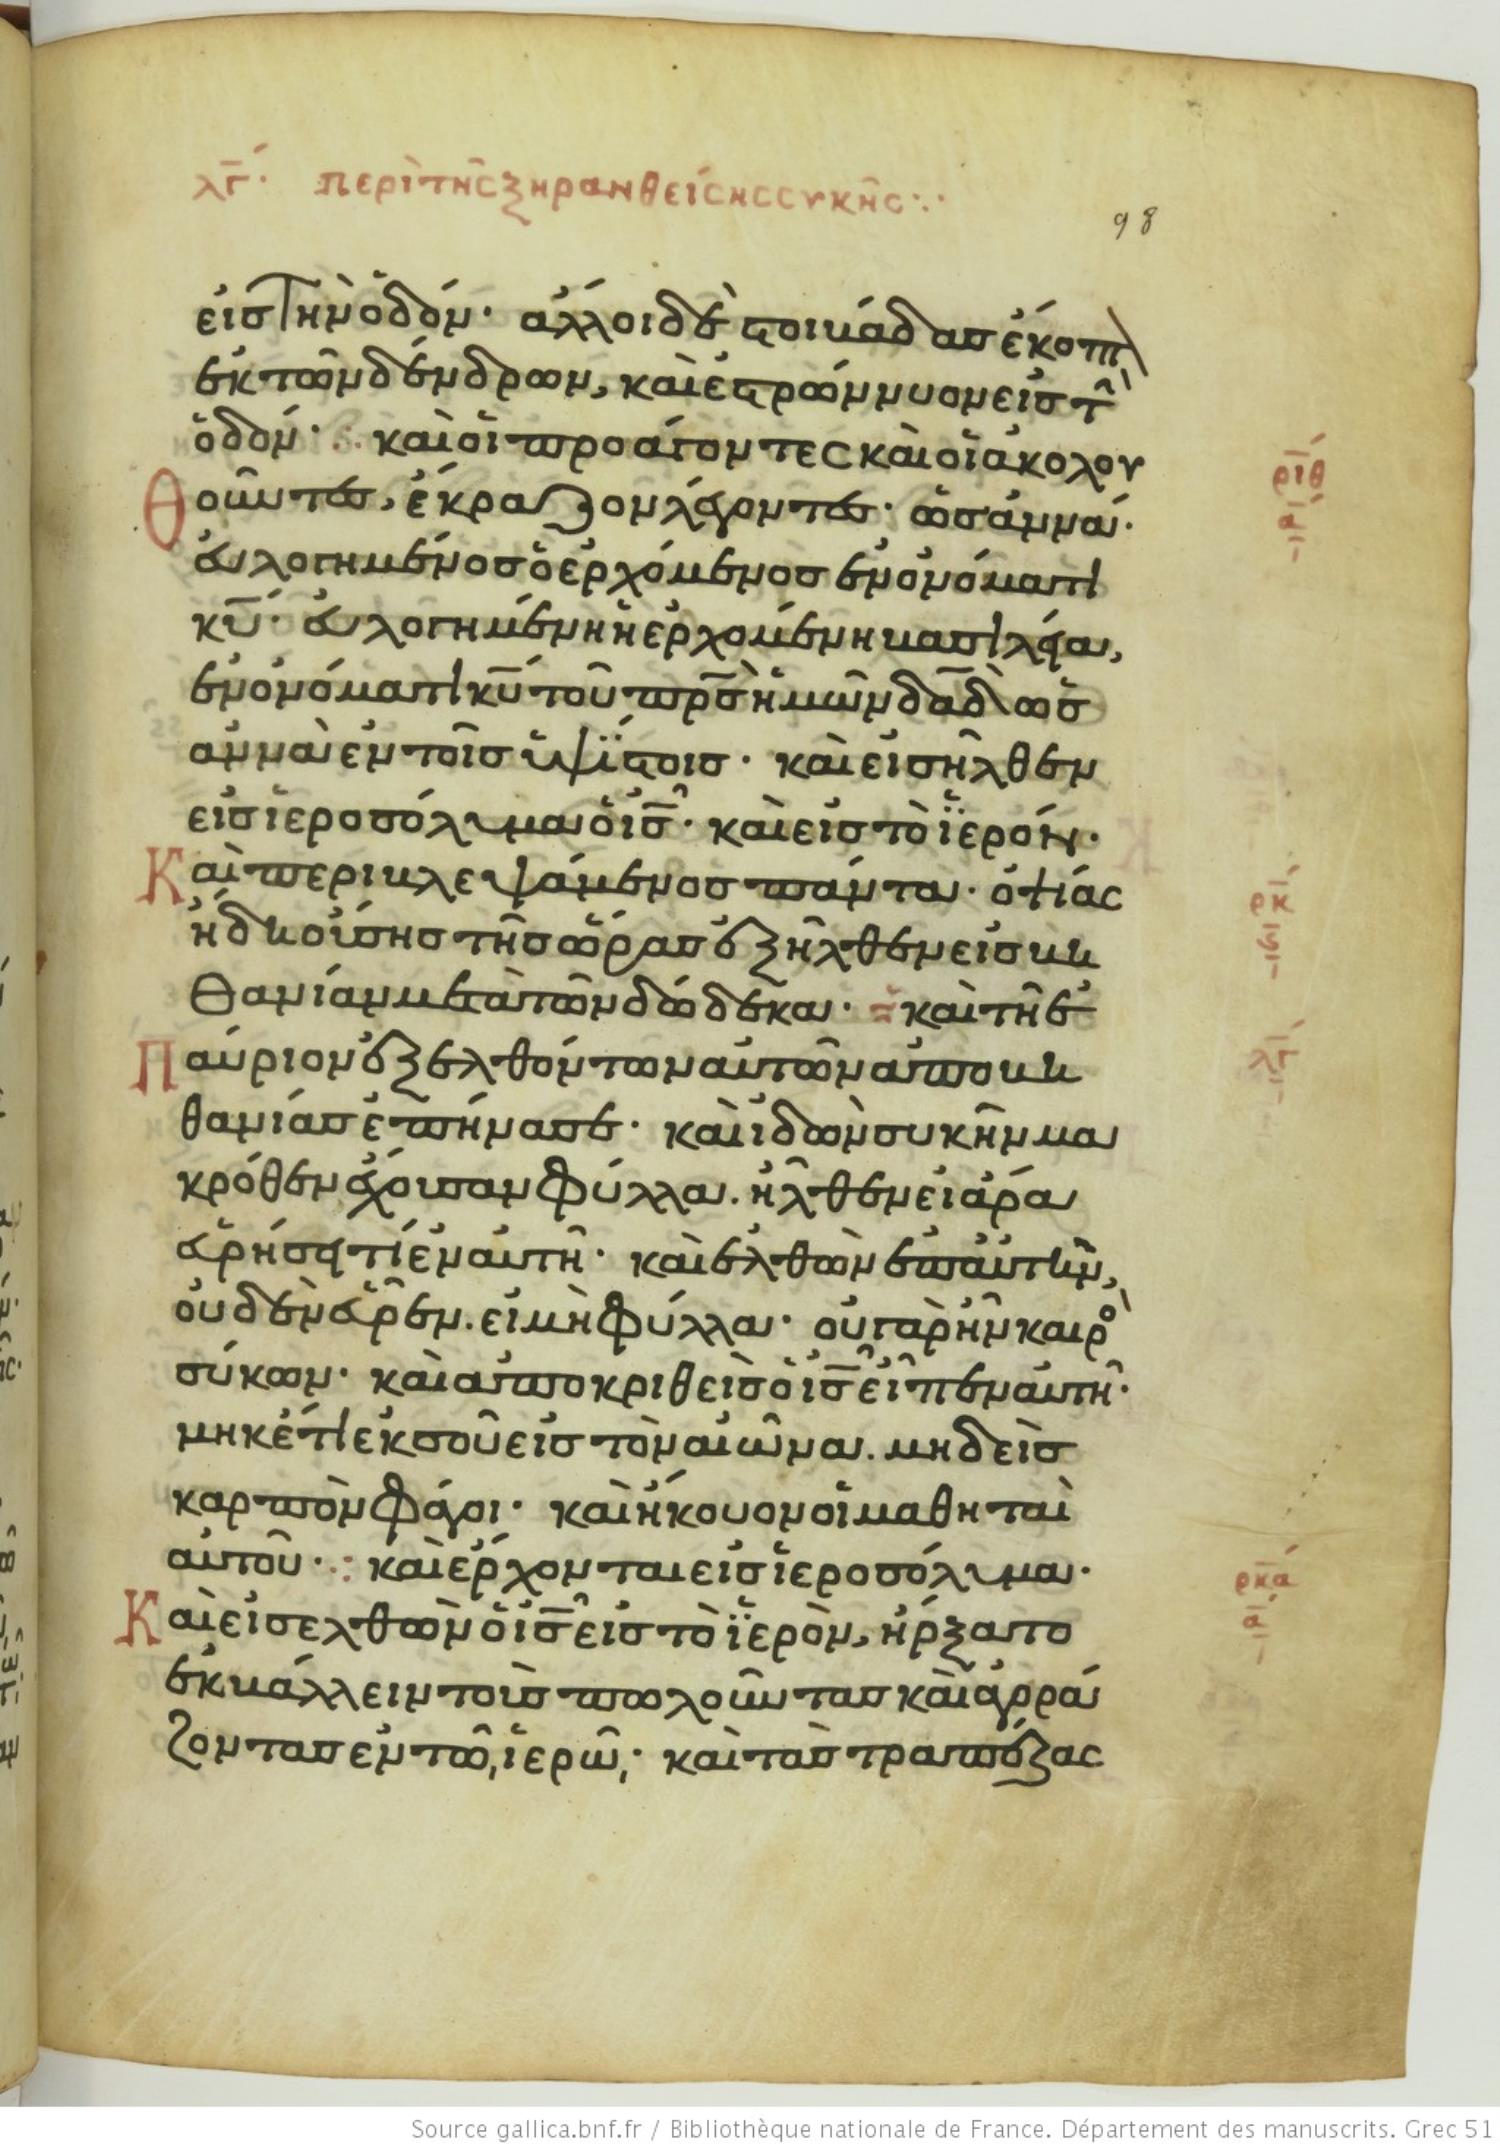 λγ´· περὶ τῆς ξηρανθείσης συκῆς·:·
98
εἰς τὴν ὁδόν· ἄλλοι δὲ στοιβάδας ἔκοπτ
ἐκ τῶν δένδρων, καὶ ἐστρώννυον εἰς τ̂
ὁδόν· καὶ οἱ προάγοντες καὶ οἱ ἀκολου
θοῦντες, ἔκραζον λέγοντες· ὡσαννά·
εὐλογημένος ὁ ἐρχόμενος ἐν ὀνόματι
κ̅υ̅· εὐλογημένη ἡ ἐρχομένη βασιλεία,
ἐν ὀνόματι κ̅υ̅ τοῦ π̅ρ̅ς̅ ἡμῶν δ̅α̅δ̅ ὡσ
αννὰ ἐν τοῖς ὑψίστοις· καὶ εἰσῆλθεν
εἰς ἱεροσόλυμα ὁ ι̅ς̅· καὶ εἰς τὸ ἱερόν·
Καὶ περιβλεψάμενος πάντα· ὀψίας
ἤδη οὔσης τῆς ὥρας ἐξῆλθεν εἰς βη
θανίαν μετὰ τῶν δώδεκα· καὶ τῆ ἐ
Παύριον ἐξελθόντων αὐτῶν ἀπο βη
θανίας ἐπείνασε· καὶ ἰδὼν συκῆν μα
κρόθεν ἔχουσαν φύλλα. ἦλθεν εἰ ἄρα
εὑρήσει τί ἐν αυτῆ· καὶ ἐλθὼν ἐπ αὐτὴν,
οὐδὲν εὗρεν. εἰ μὴ φύλλα· οὐ γὰρ ἦν καιρο`
σύκων· καὶ ἀποκριθεὶς ὁ ι̅ς̅ εἶπεν αὐτῆ·
μηκέτι ἐκ σοῦ εἰς τὸν αἰῶνα. μηδεὶς
καρπὸν φάγοι· καὶ ἤκουον οἱ μαθηταὶ
αὐτοῦ· καὶ ἔρχονται εἰς ἱεροσόλυμα·
Καὶ εἰσελθὼν ὁ ι̅ς̅ εἰς τὸ ἱερὸν, ἤρξατο
ἐκβάλλειν τοὺς πωλοῦντας καὶ ἀγορά
ζοντας ἐν τῶ, ἱερῶ,· καὶ τὰς τραπέζας
ριθ
α
ρκ
ϛ
λγ
ρκα
α
Source gallica.bnf.fr / Bibliothèque nationale de France. Département des manuscrits. Grec 51